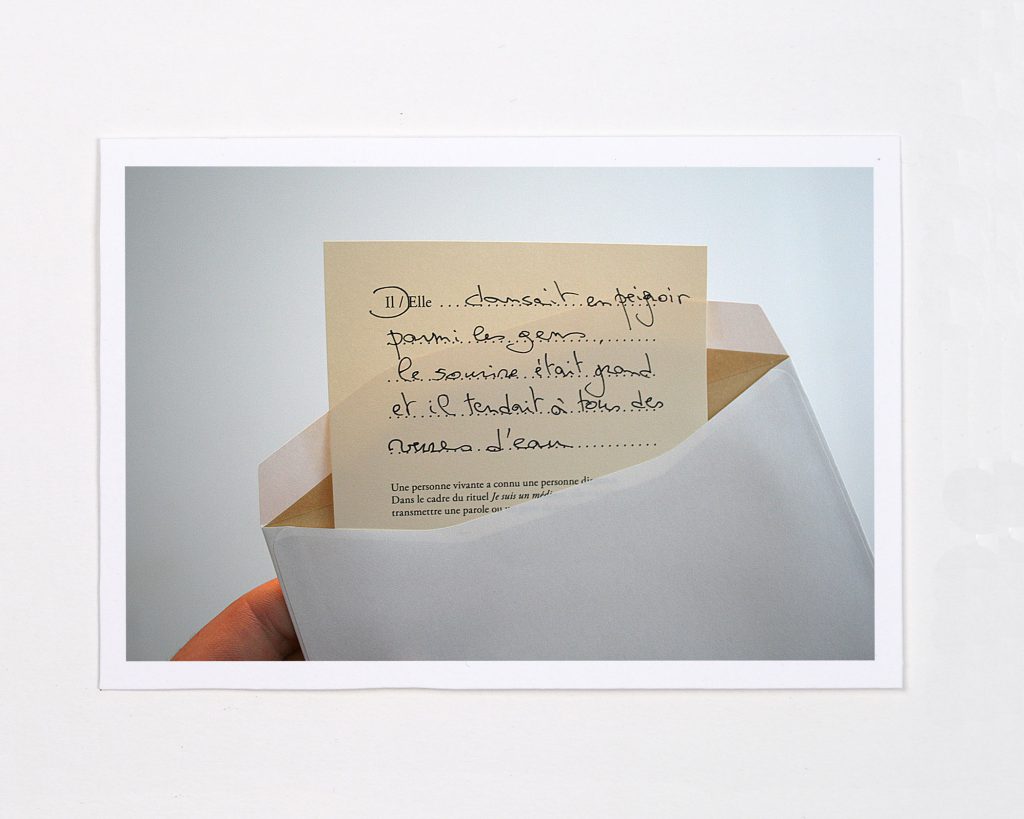 Il / Elle ... dansait en peignoir
parmi les gens
le sourire était grand
et il tendait à tous des
verres d'eau
Une personne vivante a connu une personne
Dans le cadre du rituel Je suis un
transmettre une parole ou